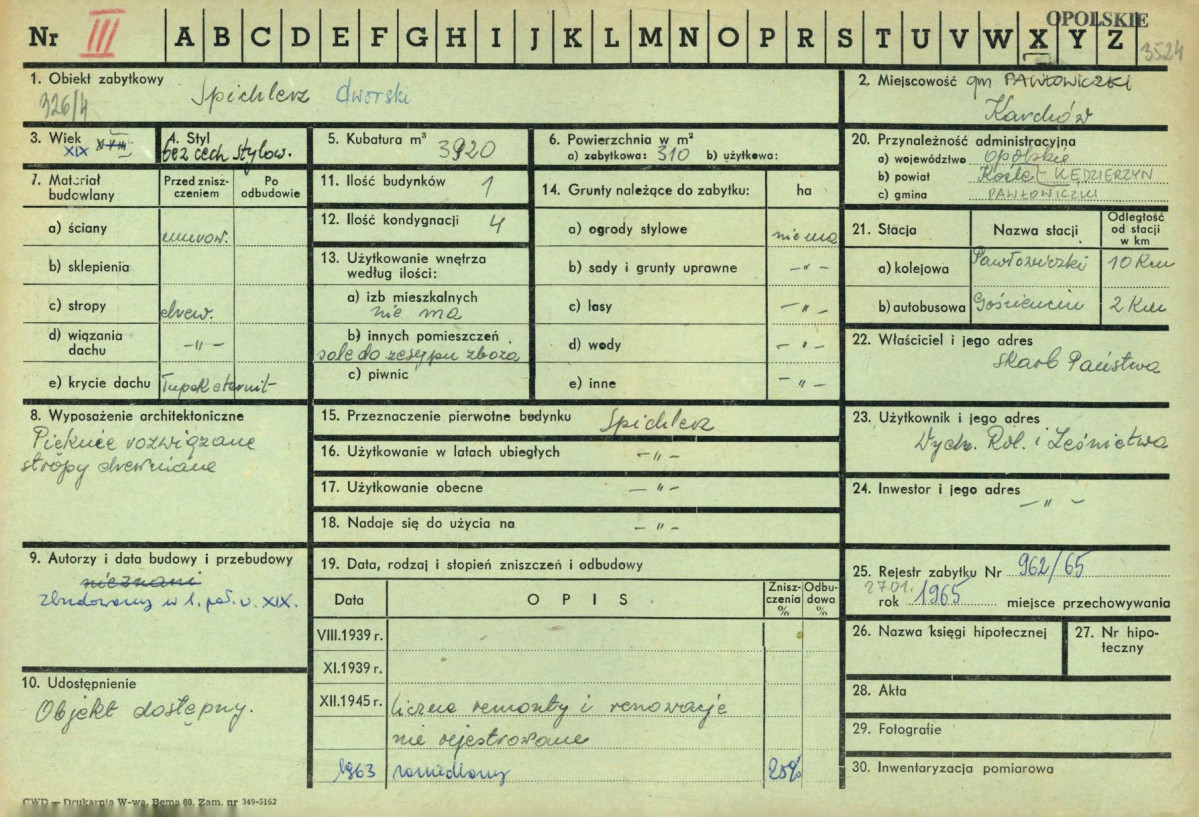 OPOLSKIE
Nr III A B C D E F G H I J K L M N O P R S T U V W X Y Z
3524
1. Obiekt zabytkowy
326/4 Spichlerz dworski
2. Miejscowość gm PAWŁOWICZKI
Karchów
3. Wiek
XIX
4. Styl
bez cech stylow.
5. Kubatura m³
3920
6. Powierzchnia w m²
a) zabytkowa: 310 b) użytkowa:
20. Przynależność administracyjna
a) województwo opolskie
b) powiat Koźle KĘDZIERZYN
c) gmina PAWŁOWICZKI
7. Materiał budowlany
Przed zniszczeniem
Po odbudowie
a) ściany murow.
b) sklepienia
c) stropy drew.
d) wiązania dachu -"-
e) krycie dachu łupek eternit
11. Ilość budynków 1
12. Ilość kondygnacji 4
13. Użytkowanie wnętrza
według ilości:
a) izb mieszkalnych
nie ma
b) innych pomieszczeń
sale do zesypu zboża
c) piwnic
14. Grunty należące do zabytku: ha
a) ogrody stylowe nie ma
b) sady i grunty uprawne -"-
c) lasy -"-
d) wody -"-
e) inne -"-
21. Stacja
Nazwa stacji
Odległość od stacji w km
a) kolejowa Pawłowiczki 10 Km
b) autobusowa Gościęcin 2 Km
22. Właściciel i jego adres
Skarb Państwa
8. Wyposażenie architektoniczne
Pięknie rozwiązane
stropy drewniane
15. Przeznaczenie pierwotne budynku Spichlerz
16. Użytkowanie w latach ubiegłych -"-
17. Użytkowanie obecne -"-
18. Nadaje się do użycia na -"-
23. Użytkownik i jego adres
Wydz. Rol. i Leśnictwa
24. Inwestor i jego adres
-"-
9. Autorzy i data budowy i przebudowy
nieznani
zbudowany w 1. poł. w. XIX.
19. Data, rodzaj i stopień zniszczeń i odbudowy
Data
OPIS
Zniszczenia %
Odbudowa %
VIII.1939 r.
XI.1939 r.
XII.1945 r. liczne remonty i renowacje
nie rejestrowane
1963 zaniedbany 25%
25. Rejestr zabytku Nr 962/65
27.01.
rok 1965 miejsce przechowywania
26. Nazwa księgi hipotecznej
27. Nr hipoteczny
10. Udostępnienie
Objekt dostępny.
28. Akta
29. Fotografie
30. Inwentaryzacja pomiarowa
CWD — Drukarnia W-wa, Bema 60, Zam. nr 349-5162